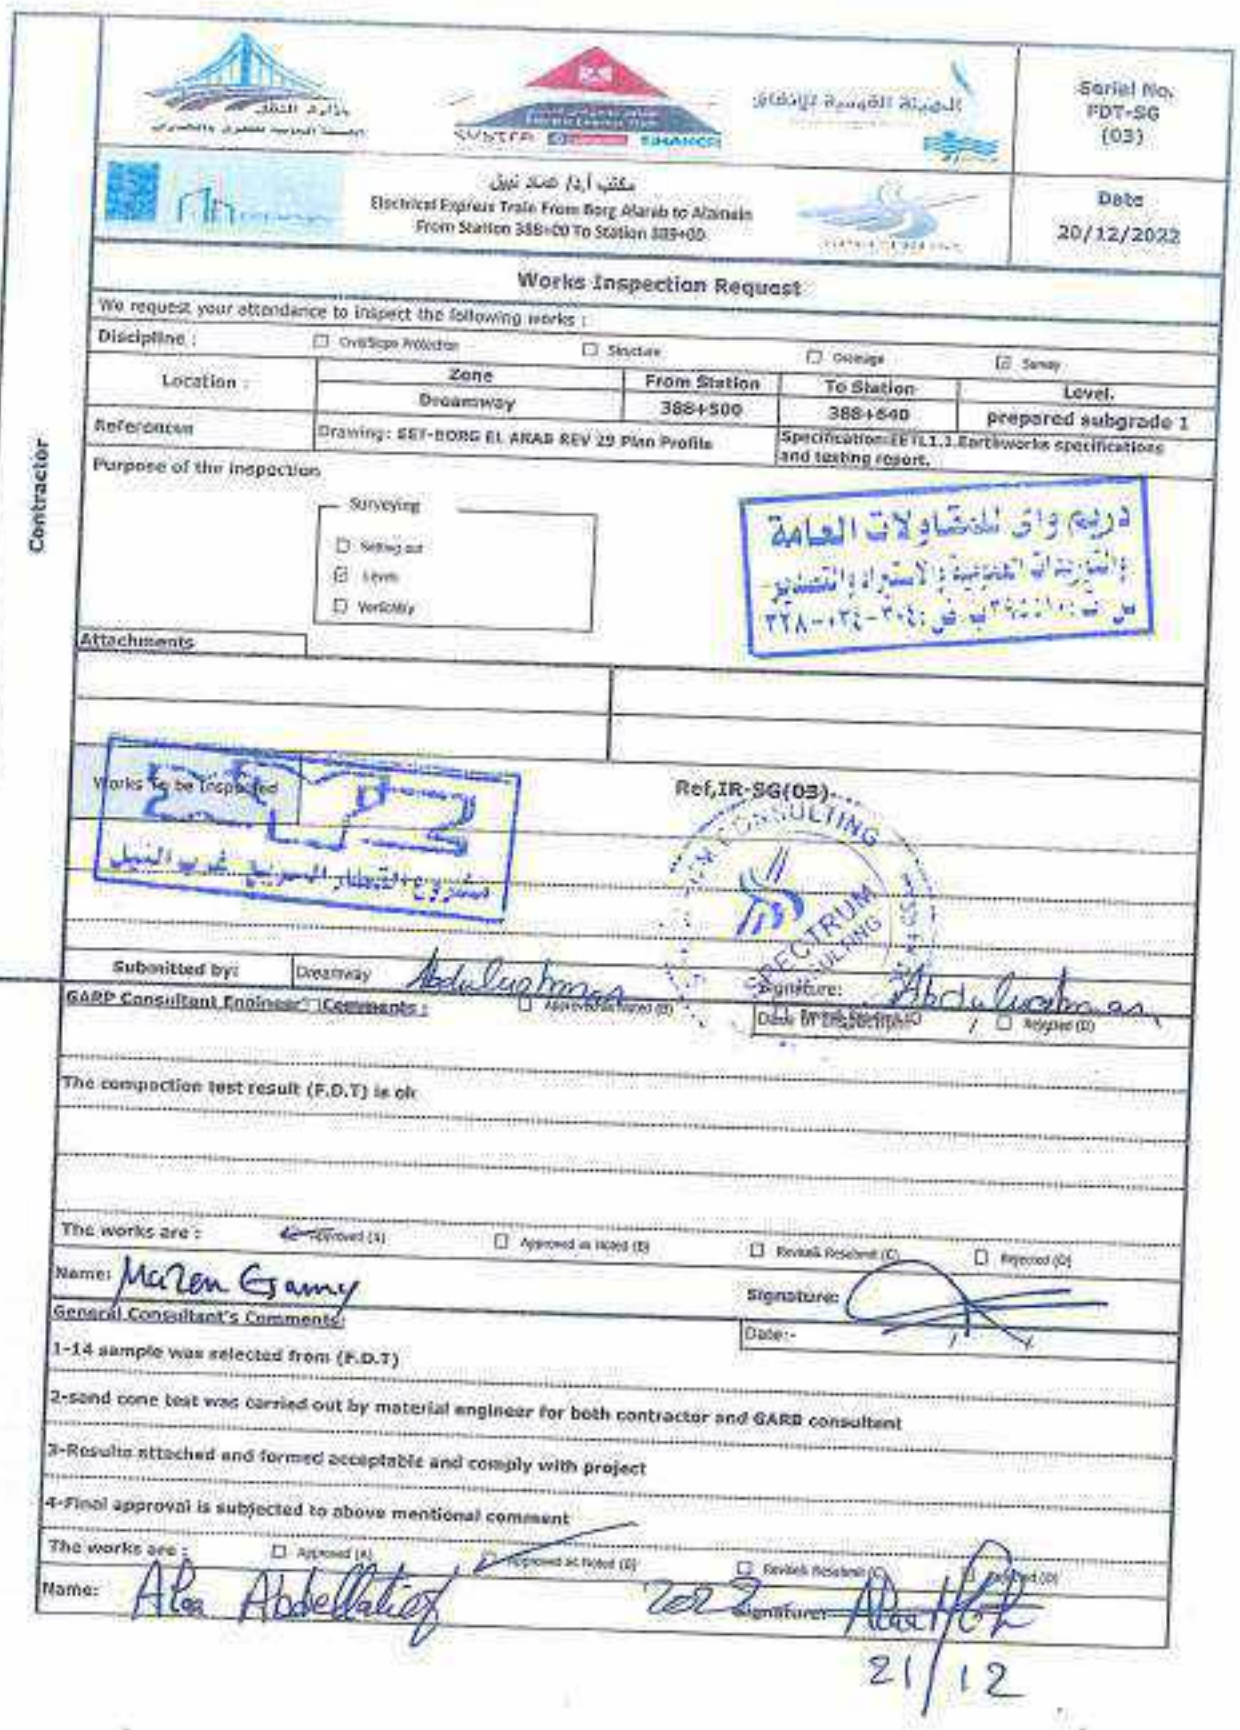 Serial No.
FDT-SG
(03)
وزارة النقل
الهيئة القومية للأنفاق
SYSTRA
مكتب أ.د/ عماد نبيل
Electrical Express Train From Borg Alarab to Alamein
From Station 388+00 To Station 389+00
Date
20/12/2022
Works Inspection Request
We request your attendance to inspect the following works :
Discipline : Civil/Slope Protection Structure Drainage Survey
Location : Zone From Station To Station Level.
Dreamway 388+500 388+640 prepared subgrade 1
References Drawing: EET-BORG EL ARAB REV 29 Plan Profile Specification:EETL1.1.Earthworks specifications and testing report.
Contractor
Purpose of the inspection
Surveying
Setting out
Levels
Verticality
دريم واى للمقاولات العامة
Attachments
Works To be Inspected
Ref,IR-SG(03)
مشروع القطار السريع غرب النيل
CONSULTING
SPECTRUM
CONSULTING
Submitted by: Dreamway Abdulrahman Signature: Abdulrahman
GARP Consultant Engineer's Comments : Approved as Noted (B) Date of Inspection: Rejected (D)
The compaction test result (F.D.T) is ok
The works are : Approved (A) Approved as Noted (B) Revise& Resubmit (C) Rejected (D)
Name: Mazen Gamy Signature:
General Consultant's Comments:
Date:-
1-14 sample was selected from (F.D.T)
2-sand cone test was carried out by material engineer for both contractor and GARB consultent
3-Results attached and formed acceptable and comply with project
4-Final approval is subjected to above mentional comment
The works are : Approved (A) Approved as Noted (B) Revise& Resubmit (C) Rejected (D)
Name: Alaa Abdellatief 2022 Signature:
21/12